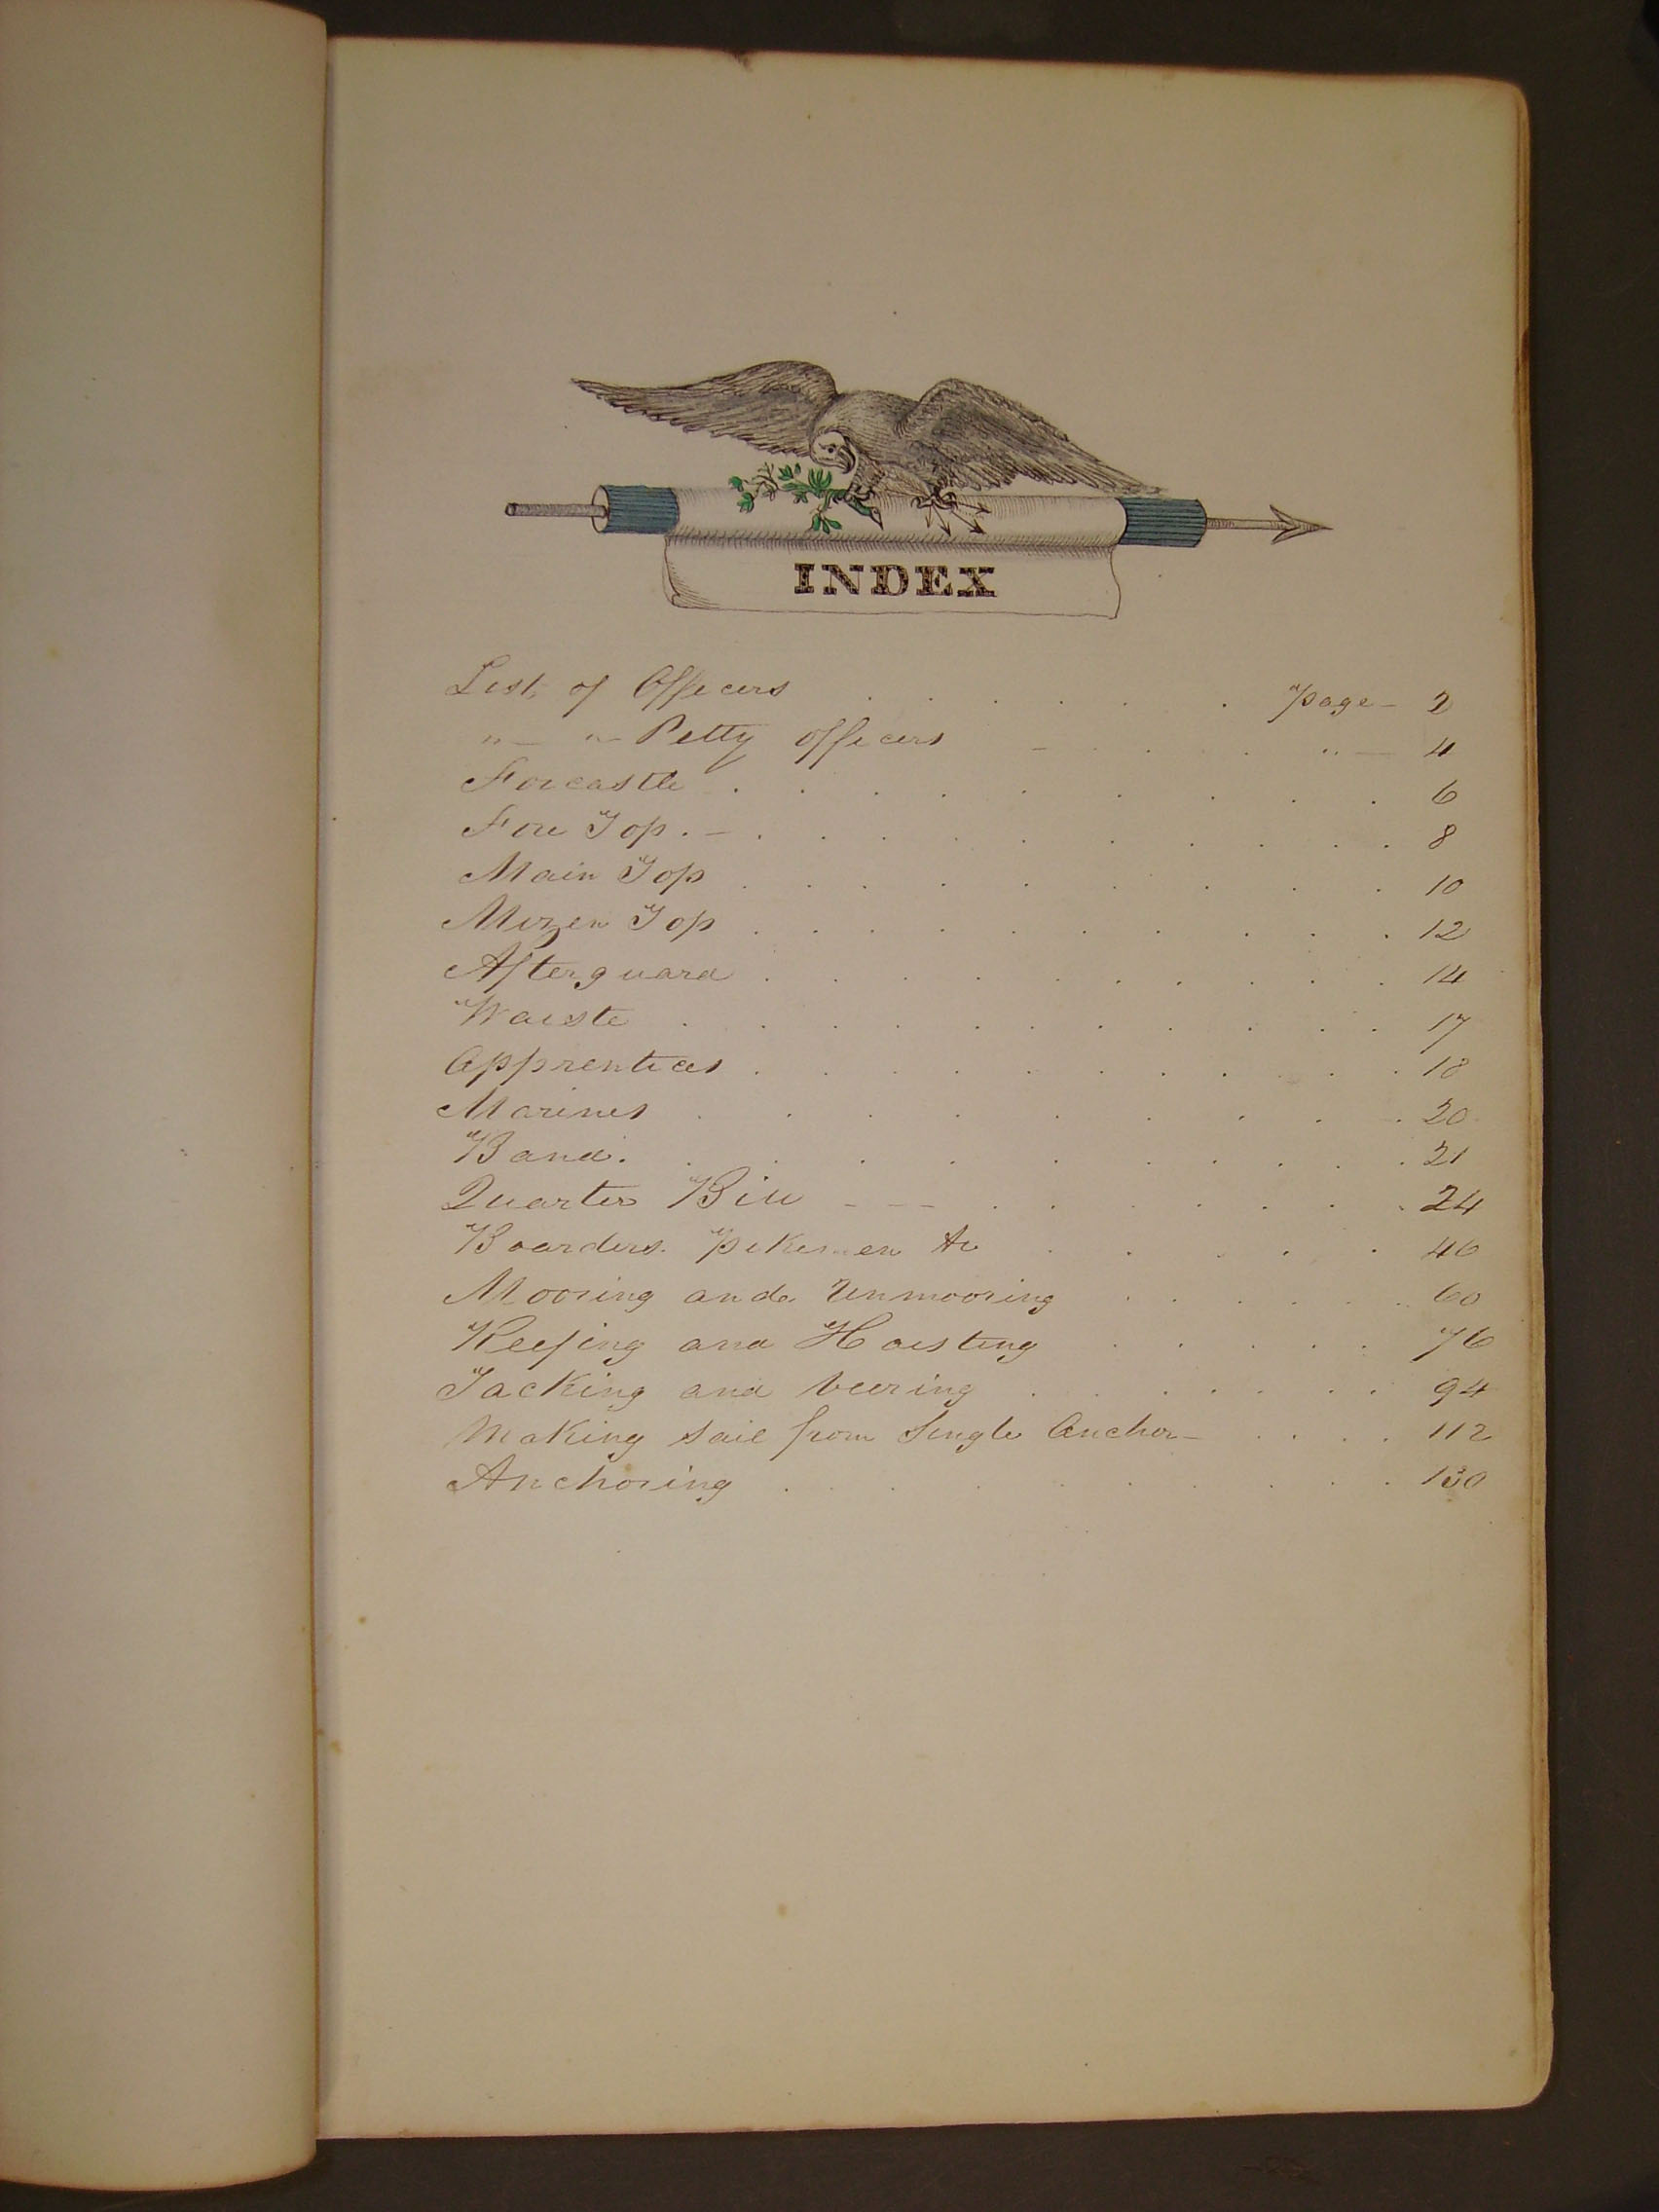 INDEX
List of Officers . . . . . . page - 2
" - " - Petty officers - . . . " - 4
Forcastle . . . . . . . . . 6
Fore Top . - . . . . . . . . . 8
Main Top . . . . . . . . 10
Mizen Top . . . . . . . . . 12
Afterguard . . . . . . . . . 14
Waiste . . . . . . . . . . 17
Apprentices . . . . . . . . . 18
Marines . . . . . . . . 20
Band . . . . . . . . . . 21
Quarter Bill - - - . . . . . . 24
Boarders. Pikemen &c . . . . . 46
Mooring and Unmooring . . . . . . 60
Reefing and Hoisting . . . . . 76
Tacking and veering . . . . . . 94
Making sail from Single Anchor - . . . . 112
Anchoring . . . . . . . . 130